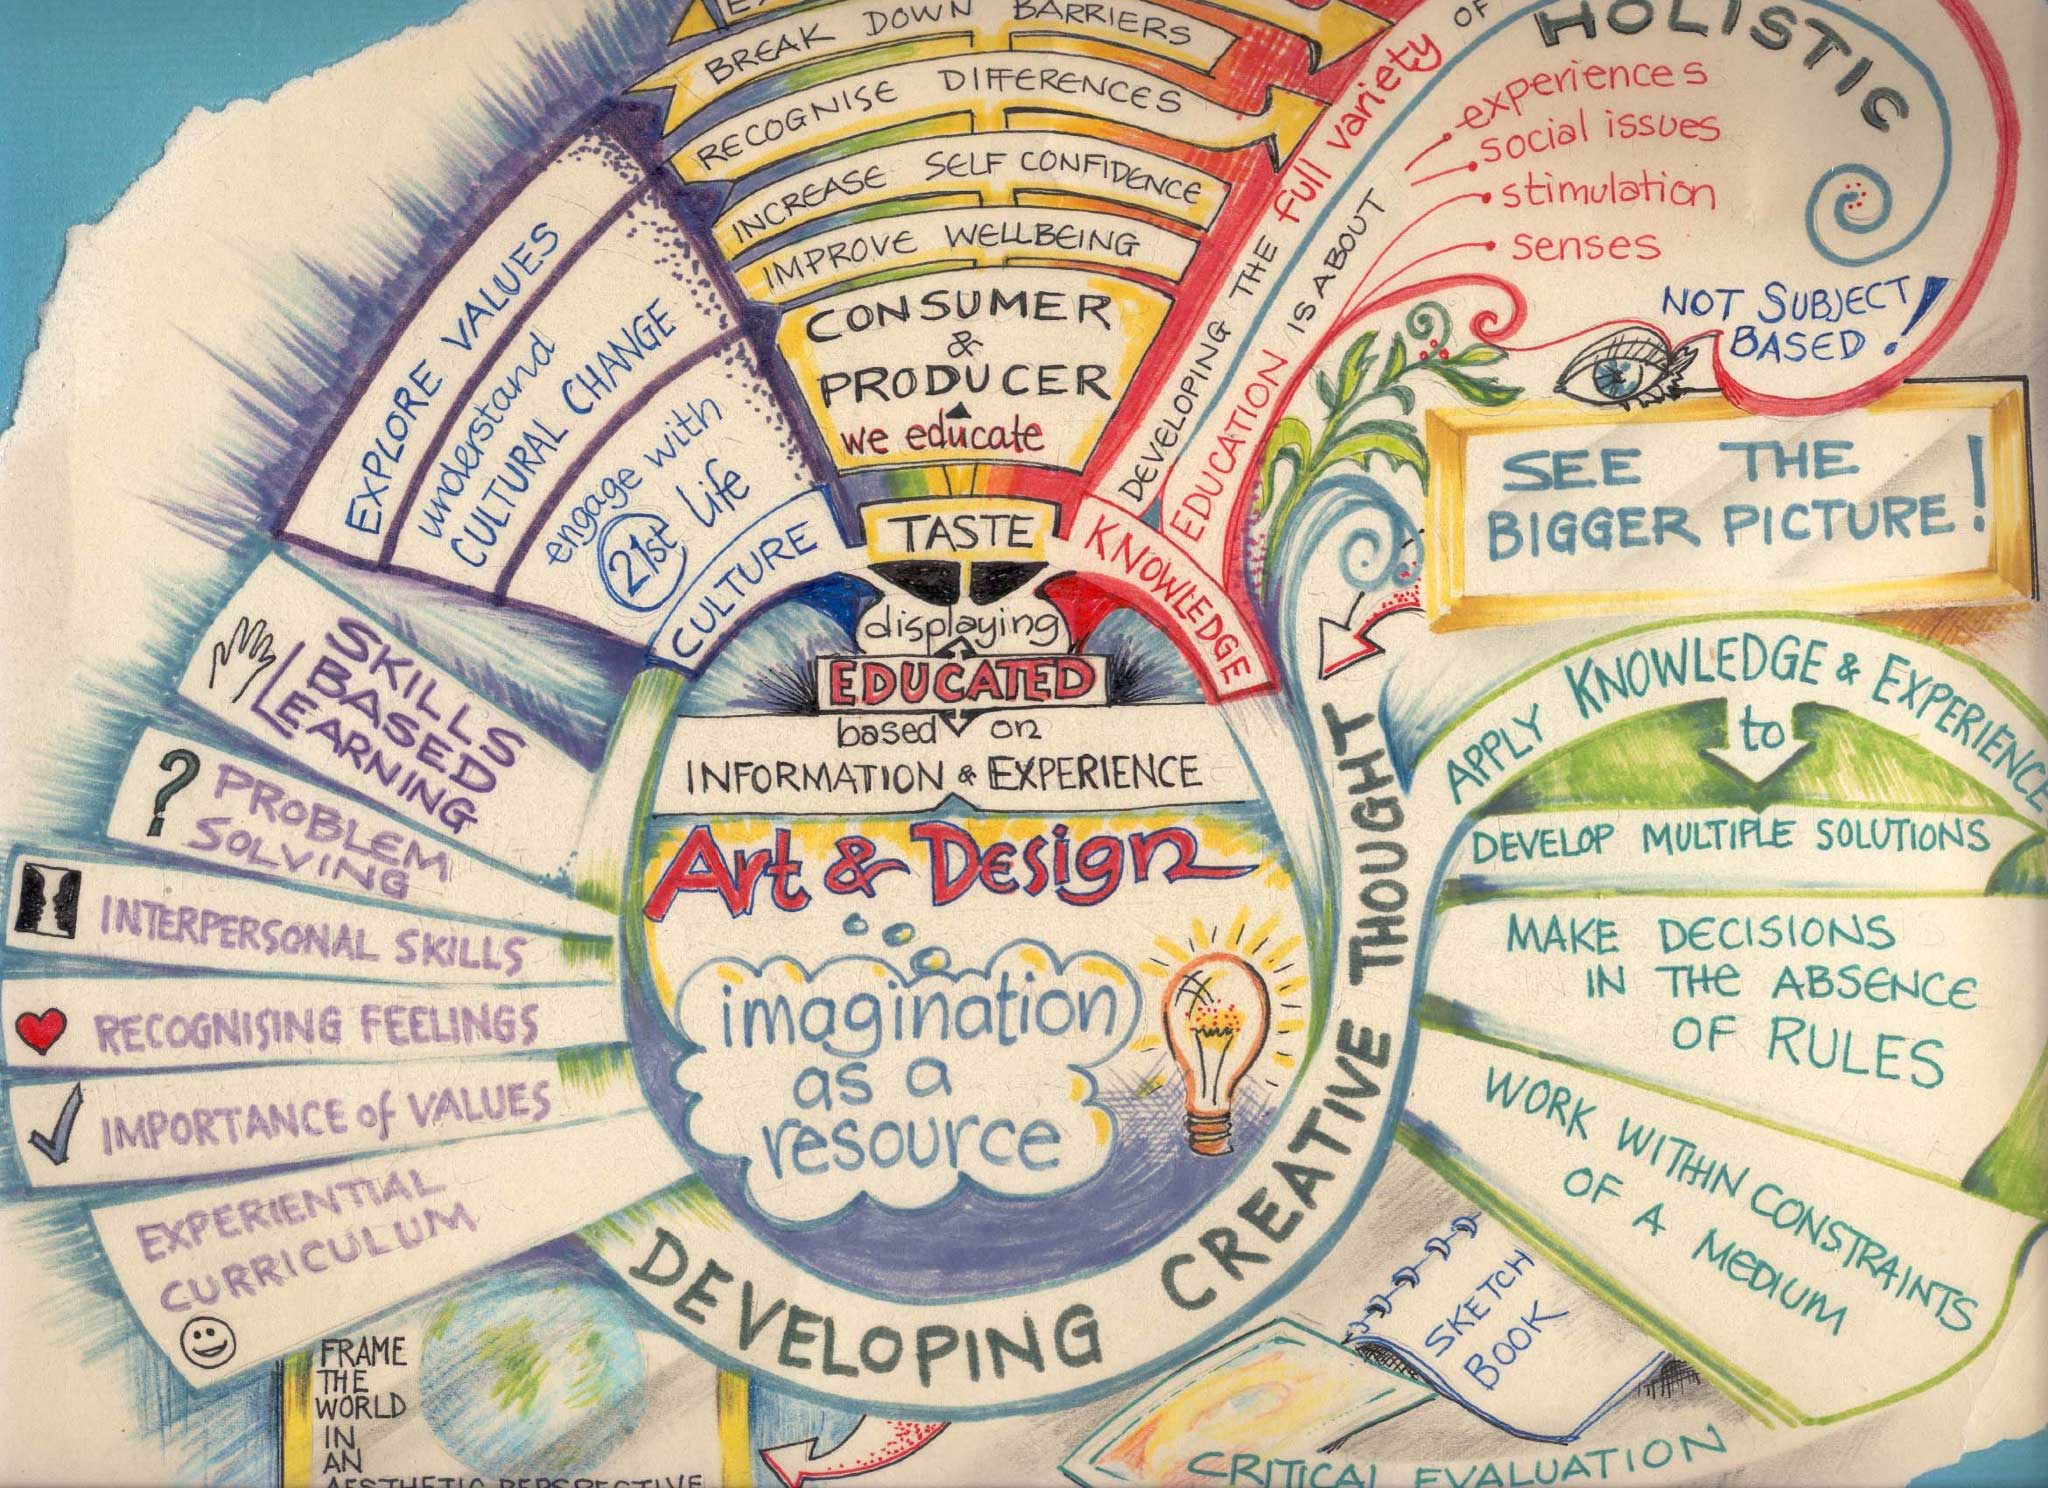 BREAK DOWN BARRIERS
RECOGNISE DIFFERENCES
INCREASE SELF CONFIDENCE
IMPROVE WELLBEING
CONSUMER
&
PRODUCER
we educate
TASTE
displaying
EDUCATED
based on
INFORMATION & EXPERIENCE
Art & Design
imagination
as a
resource
DEVELOPING CREATIVE THOUGHT
CULTURE
EXPLORE VALUES
understand
CULTURAL CHANGE
engage with
21st life
SKILLS
BASED
LEARNING
?
PROBLEM
SOLVING
INTERPERSONAL SKILLS
RECOGNISING FEELINGS
IMPORTANCE of VALUES
EXPERIENTIAL
CURRICULUM
FRAME
THE
WORLD
IN
AN
AESTHETIC PERSPECTIVE
KNOWLEDGE
DEVELOPING THE full variety OF
EDUCATION IS ABOUT
HOLISTIC
experiences
social issues
stimulation
senses
NOT SUBJECT
BASED!
SEE THE
BIGGER PICTURE!
APPLY KNOWLEDGE & EXPERIENCE
to
DEVELOP MULTIPLE SOLUTIONS
MAKE DECISIONS
IN THE ABSENCE
OF RULES
WORK WITHIN CONSTRAINTS
OF A MEDIUM
SKETCH
BOOK
CRITICAL EVALUATION